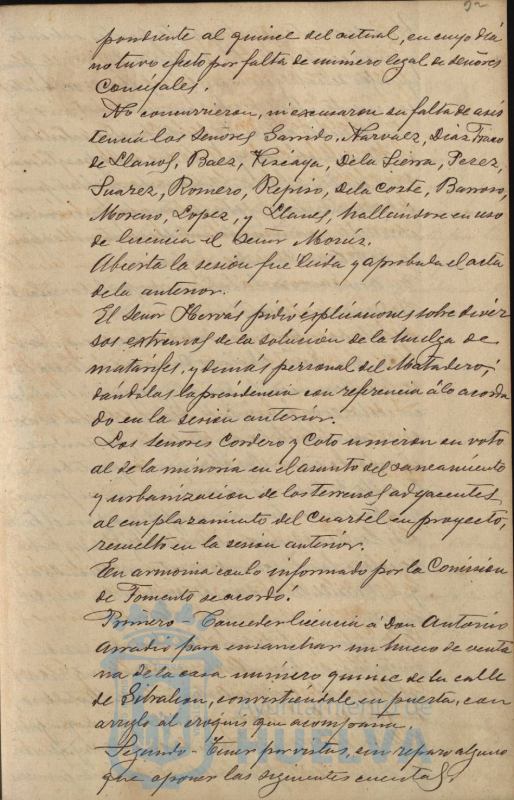 92
pondiente al quince del actual, en cuyo dia
no tuvo efecto por falta de número legal de señores
Concejales.
No concurrieron, ni excusaron su falta de asis
tencia los Señores Garrido, Narvaez, Diaz Franco
de Llanos, Baez, Vizcaya, De la Sierra, Perez,
Suarez, Romero, Repiso, de la Corte, Barroso,
Moreno, Lopez, y Llanes, hallandose en uso
de licencia el Señor
Abierta la sesión fue leida y aprobada el acta
de la anterior.
El Señor Hervás pidió esplicaciones sobre diver
sos estremos de la solución de la huelga de
matarifes, y demás personal del Matadero,
dándolas la presidencia con referencia á lo acorda
do en la sesion anterior.
Los Señores Cordero y Coto unieron su voto
al de la minoria en el asunto del saneamiento
y urbanizacion de los terrenos adyacentes
al emplazamiento del Cuartel en proyecto,
resuelto en la sesion anterior.
En armonia con lo informado por la Comision
de Fomento se acordó:
Primero - Conceder licencia á Don Antonio
para ensanchar un hueco de venta
na de la casa número quince de la calle
de Gibraleon, convirtiéndole en puerta, con
arreglo al croquis que acompaña.
Segundo - Tener por vistas, sin reparo alguno
que oponer las siguientes cuentas.
HUELVA